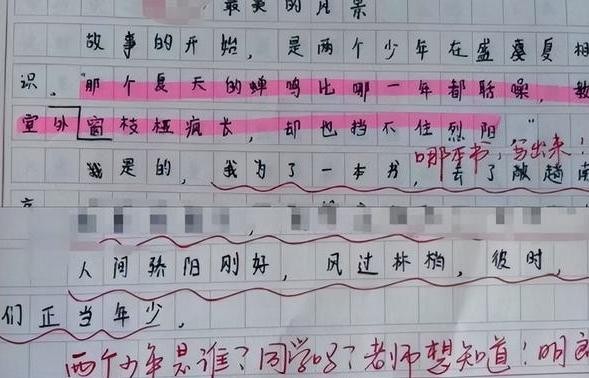 最美的风景
故事的开始，是两个少年在盛夏相
识。"那个夏天的蝉鸣比哪一年都聒噪，教
室外窗枝桠疯长，却也挡不住烈阳"
哪本书，写出来！
是的，我为了一本书，去了趟南
人间骄阳刚好，风过林梢，彼时，
们正当年少。
两个少年是谁？同学吗？老师想知道！明